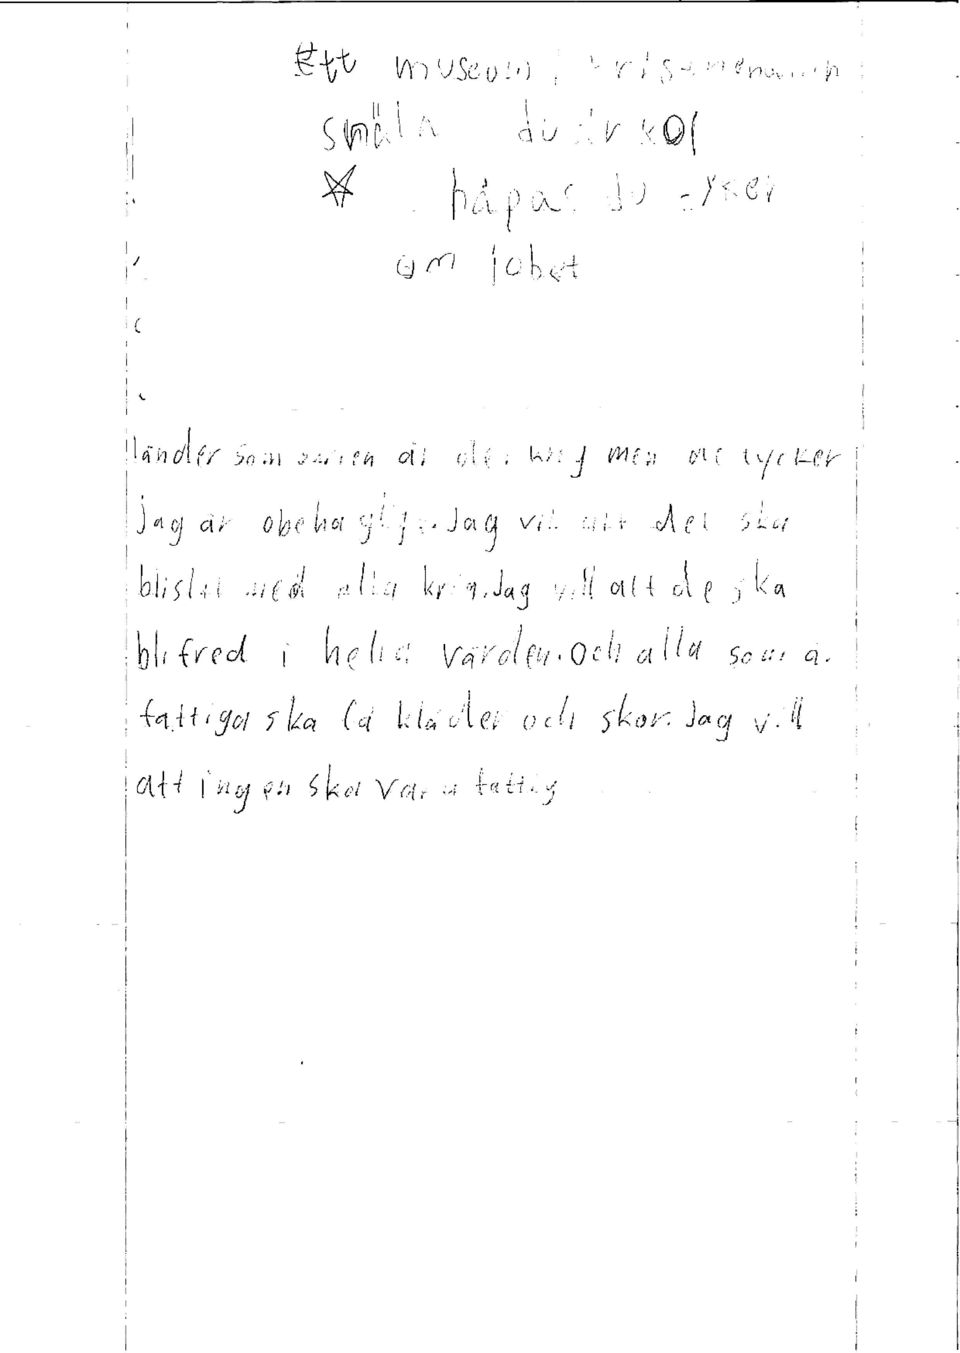 Ett museum i
snäla du är kol
håpas du tyker
om jobet
länder som sürien är det krig men de tycker
jag är obehagligt. Jag vill att det ska
blislut med alla krig. Jag vill att de ska
bli fred i hela värden. Och alla som ä.
fattiga ska få kläder och skor. Jag vill
att ingen ska vara fattig